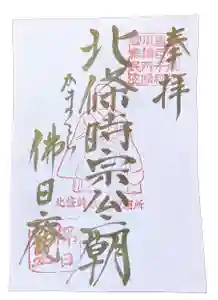 奉拝
北條時宗公廟
かまくら
佛日庵
北條時
所